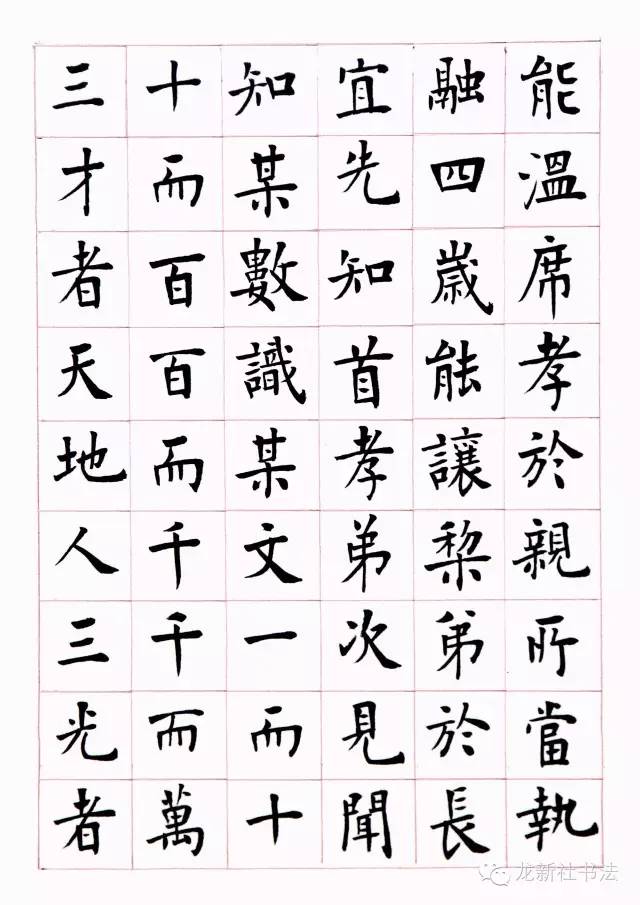 能溫席孝於親所當執
融四歲能讓棃弟於長
宜先知首孝弟次見聞
知某數識某文一而十
十而百百而千千而萬
三才者天地人三光者
龙新社书法